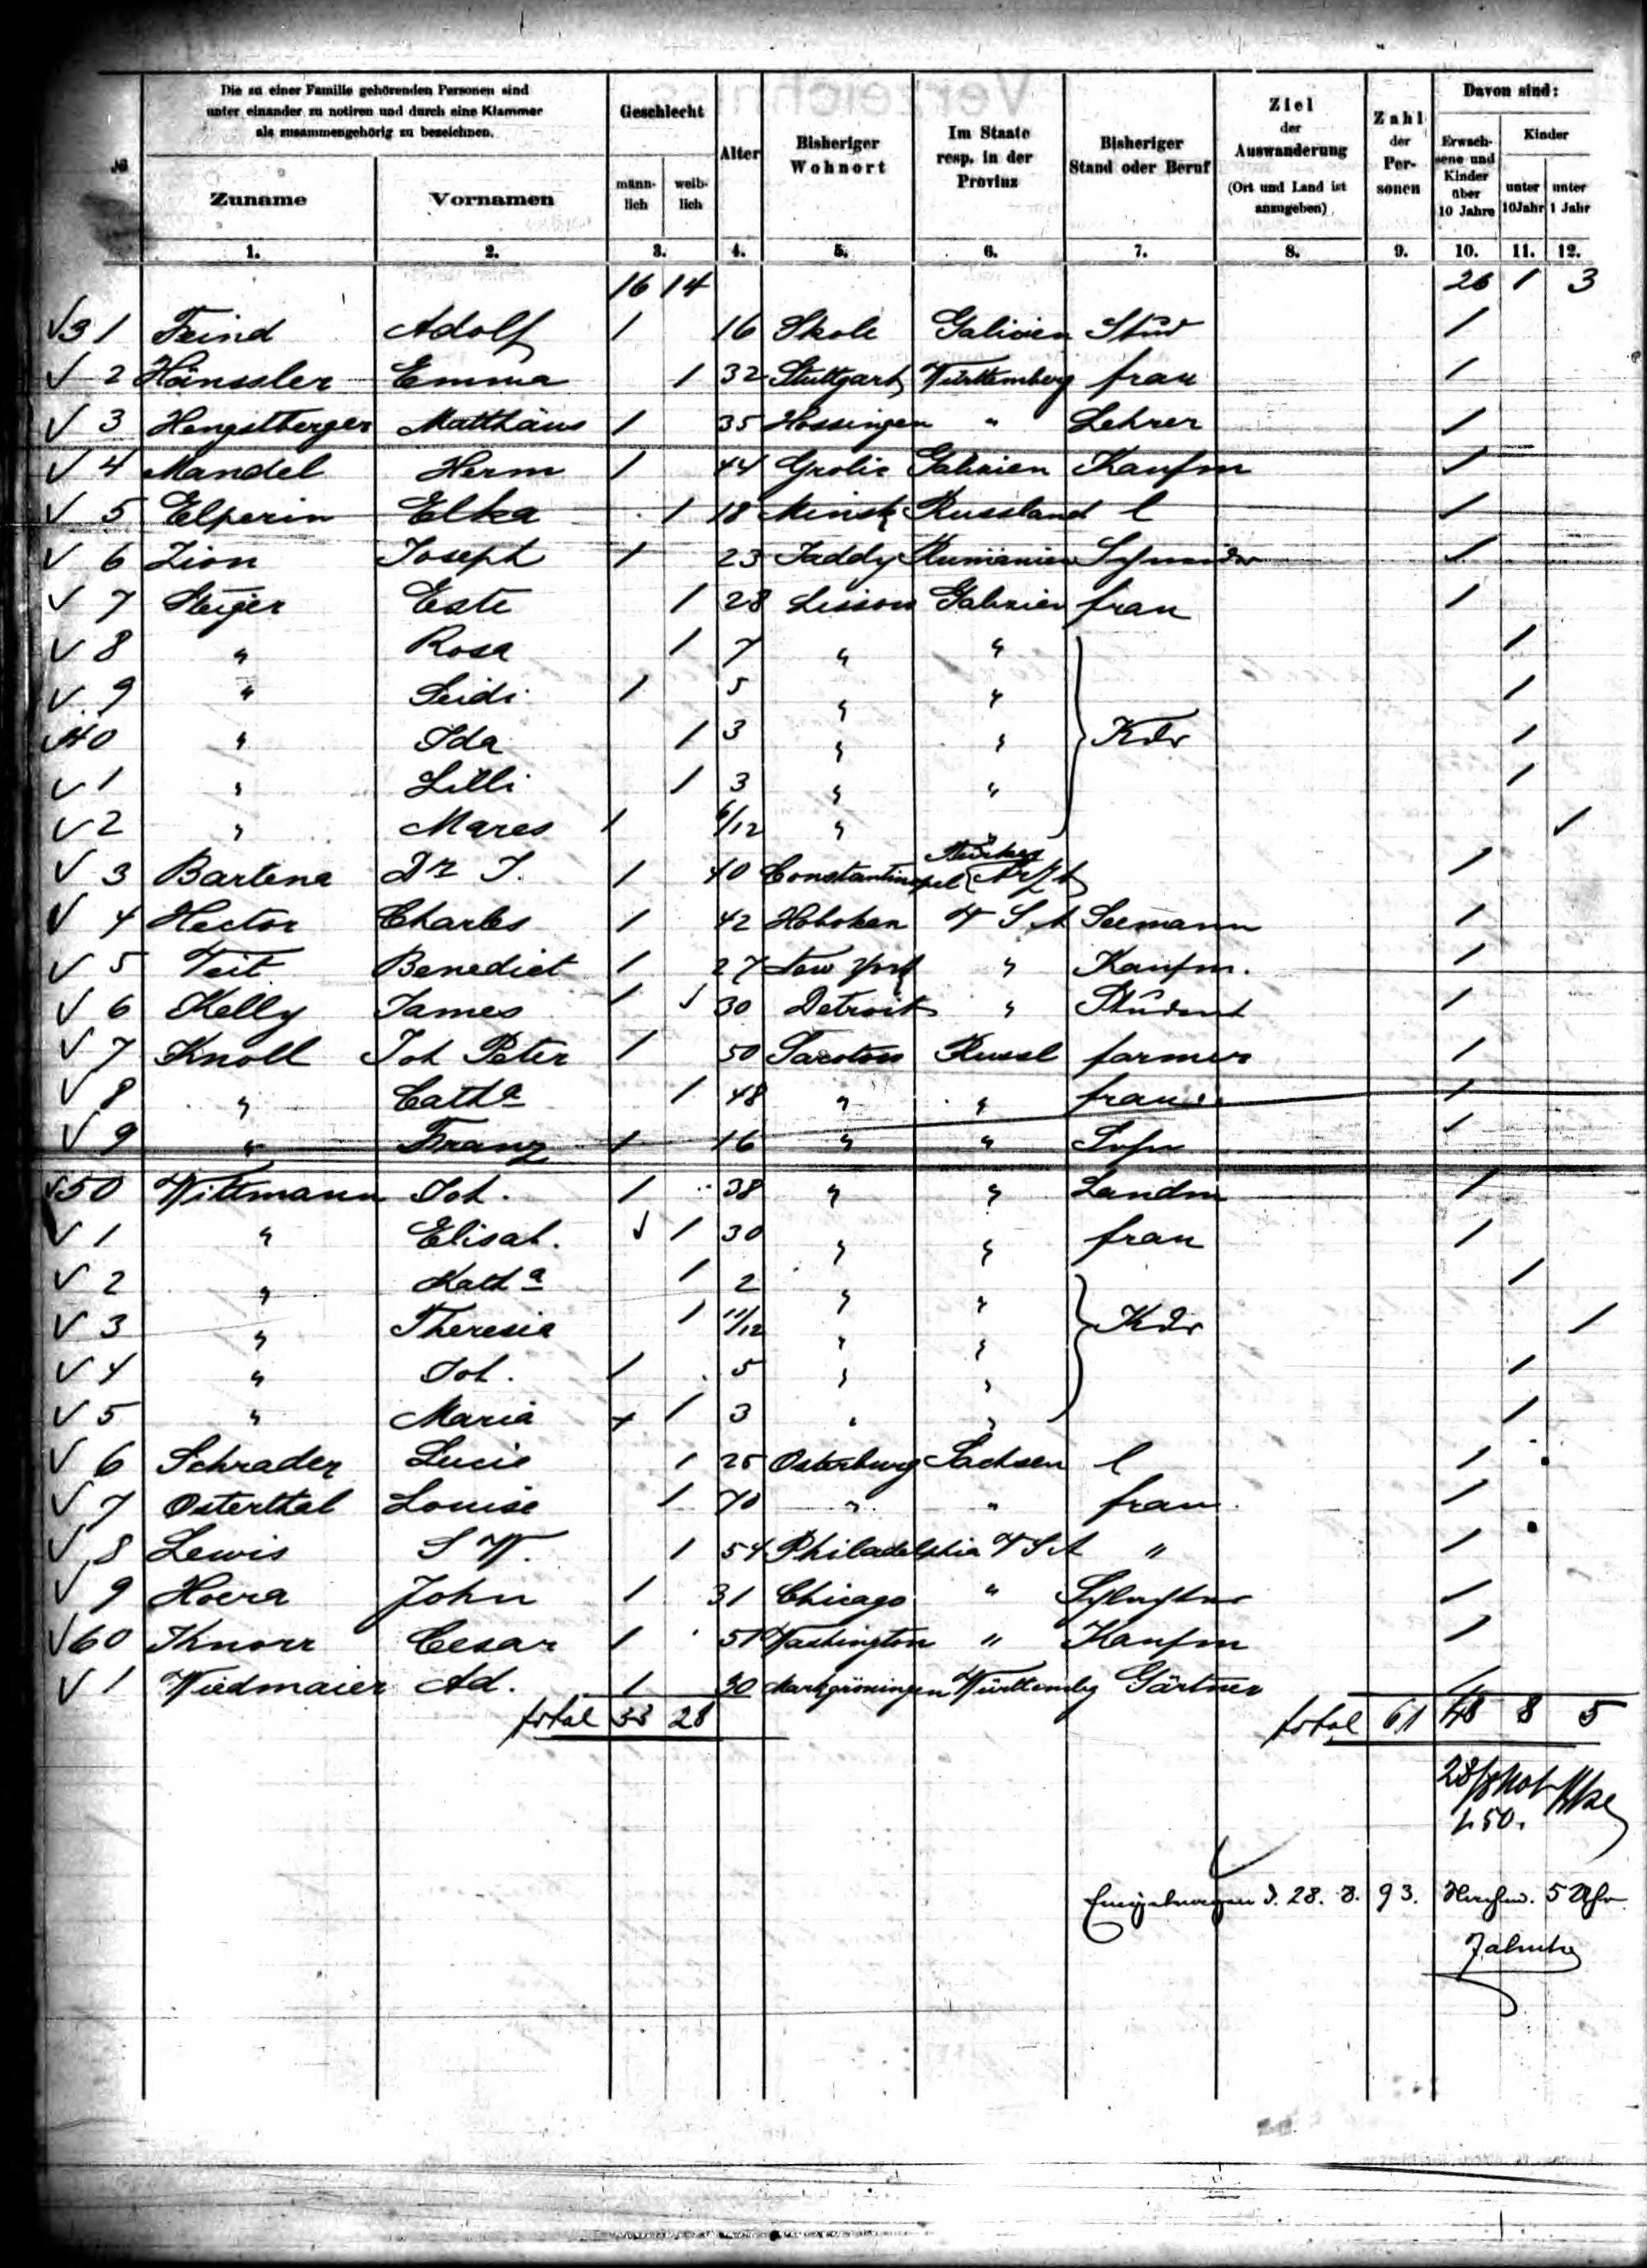 Die zu einer Familie gehörenden Personen sind
unter einander zu notiren und durch eine Klammer
als zusammengehörig zu bezeichnen.
Geschlecht
Alter
Bisheriger
Wohnort
Im Staate
resp. in der
Provinz
Bisheriger
Stand oder Beruf
Ziel
der
Auswanderung
(Ort und Land ist
anzugeben)
Zahl
der
Per-
sonen
Davon sind:
Erwach-
sene und
Kinder
über
10 Jahre
Kinder
unter
10Jahr
unter
1 Jahr
№ Zuname Vornamen männ-
lich weib-
lich
1. 2. 3. 4. 5. 6. 7. 8. 9. 10. 11. 12.
16 14 26 1 3
31 Feind Adolf 1 16 Skole Galizien Stud 1
2 Hänssler Emma 1 32 Stuttgart Württemberg frau 1
3 Hengstberger Matthäus 1 35 Hossingen " Lehrer 1
4 Mandel Herm 1 44 Galizien Kaufm 1
5 Elperin Elka 1 18 Minsk Russland l 1
6 Zion Joseph 1 23 Rumänien Schneider 1
7 Steiger Este 1 28 Galizien frau 1
8 " Rosa 1 7 " " 1
9 " Seidi 1 5 " " 1
40 " Ida 1 3 " " Kdr 1
1 " Lilli 1 3 " " 1
2 " Mares 1 6/12 " " 1
3 Bartena Dr J. 1 40 Constantinopel Türkei 1
4 Hector Charles 1 42 Hoboken U S A Seemann 1
5 Teit Benedict 1 27 New York " Kaufm. 1
6 Kelly James 1 30 Detroit " Student 1
7 Knoll Joh Peter 1 50 Saratow Russl farmer 1
8 " Cath a 1 48 " " frau 1
9 " Franz 1 16 " " Sohn 1
50 Wittmann Joh. 1 38 " " Landm 1
1 " Elisab. 1 30 " " frau 1
2 " Kath a 1 2 " " 1
3 " Theresia 1 11/12 " " Kdr 1
4 " Joh. 1 5 " " 1
5 " Maria 1 3 " " 1
6 Schrader Lucie 1 25 Osterburg Sachsen l 1
7 Osterthal Louise 1 70 " " frau 1
8 Lewis S W. 1 54 Philadelphia U S A " 1
9 Hoera John 1 31 Chicago " Schlachter 1
60 Knorr Cesar 1 51 Washington " Kaufm 1
1 Wiedmaier Ad. 1 30 Markgröningen Württembg Gärtner 1
total 33 28 total 61 48 8 5
28/8
1.50.
d. 28. 8. 93. 5 Uhr